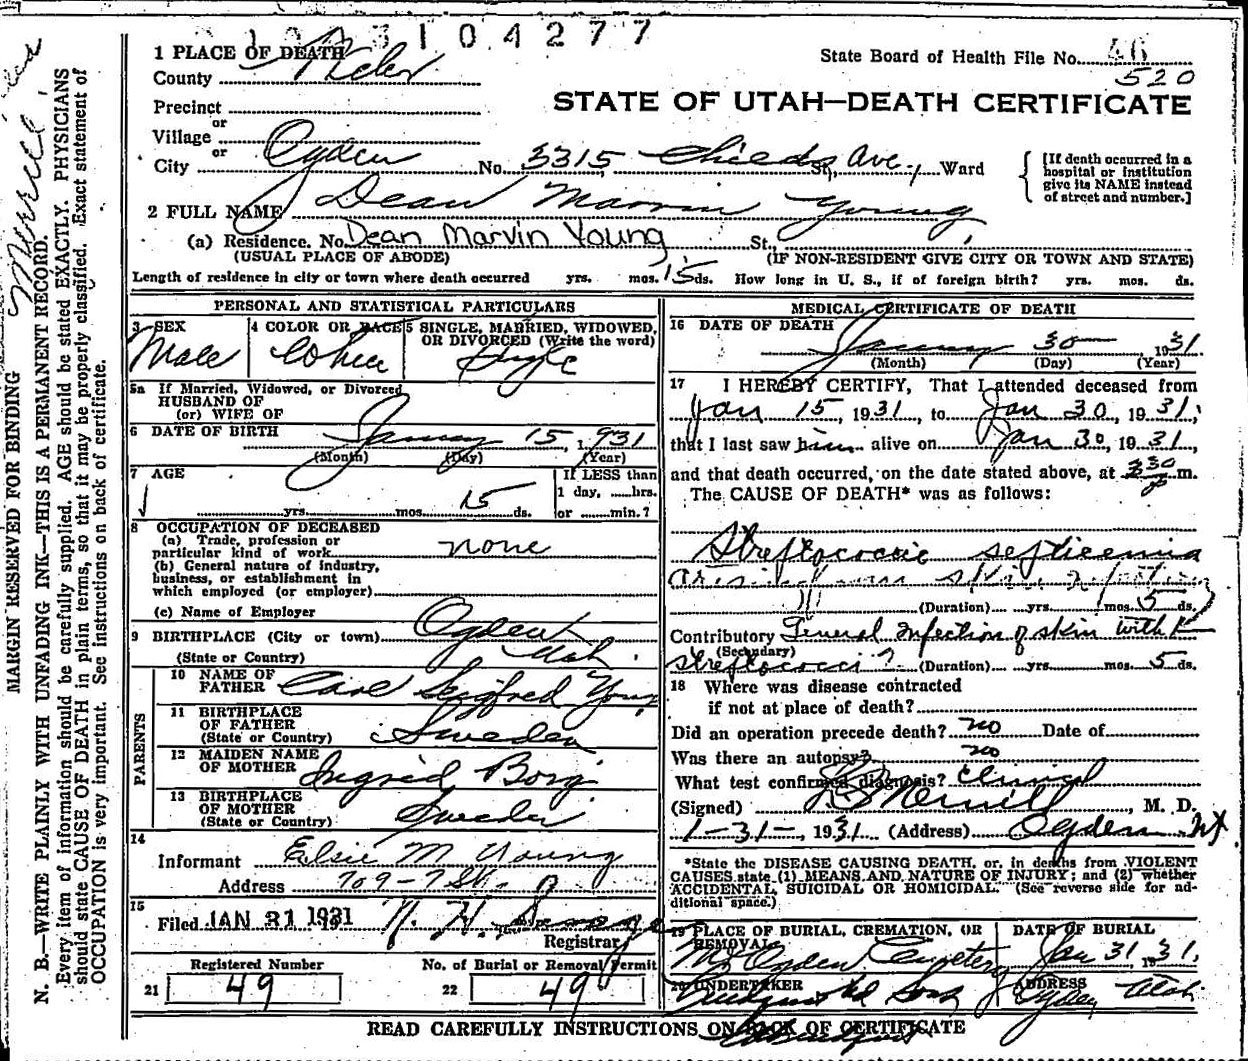 3104277
1 PLACE OF DEATH
State Board of Health File No. 46
County Weber
520
Precinct
STATE OF UTAH—DEATH CERTIFICATE
or
Village
or
City Ogden No. 3315 Childs St., Ave., Ward
[If death occurred in a
hospital or institution
give its NAME instead
of street and number.]
2 FULL NAME Dean Marvin Young
(a) Residence. No. Dean Marvin Young St.,
(USUAL PLACE OF ABODE) (IF NON-RESIDENT GIVE CITY OR TOWN AND STATE)
Length of residence in city or town where death occurred yrs. mos. 15 ds. How long in U. S., if of foreign birth? yrs. mos. ds.
PERSONAL AND STATISTICAL PARTICULARS
3 SEX
Male
4 COLOR OR RACE
White
5 SINGLE, MARRIED, WIDOWED,
OR DIVORCED (Write the word)
Single
5a If Married, Widowed, or Divorced
HUSBAND OF
(or) WIFE OF
6 DATE OF BIRTH January 15, 1931
(Month) (Day) (Year)
7 AGE
If LESS than
1 day, ......hrs.
or ........min.?
yrs. mos. 15 ds.
8 OCCUPATION OF DECEASED
(a) Trade, profession or
particular kind of work none
(b) General nature of industry,
business, or establishment in
which employed (or employer)
(c) Name of Employer
9 BIRTHPLACE (City or town) Ogden
(State or Country) Utah.
PARENTS
10 NAME OF
FATHER Carl Seigfred Young
11 BIRTHPLACE
OF FATHER
(State or Country) Sweden
12 MAIDEN NAME
OF MOTHER Ingrid Borg
13 BIRTHPLACE
OF MOTHER
(State or Country) Sweden
14
Informant Elsie M Young
Address 709-7 St.
15
Filed JAN 31 1931
Registrar
Registered Number
21 49
No. of Burial or Removal Permit
22 49
MEDICAL CERTIFICATE OF DEATH
16 DATE OF DEATH
January 30 1931
(Month) (Day) (Year)
17 I HEREBY CERTIFY, That I attended deceased from
Jan 15, 1931, to Jan 30, 1931,
that I last saw him alive on Jan 30, 1931,
and that death occurred, on the date stated above, at 330 p m.
The CAUSE OF DEATH* was as follows:
Streptococcic septicemia
arising from skin infection
(Duration) yrs. mos. 5 ds.
Contributory General Infection of skin with
(Secondary)
streptococci? (Duration) yrs. mos. 5 ds.
18 Where was disease contracted
if not at place of death?
Did an operation precede death? no Date of
Was there an autopsy? no
What test confirmed diagnosis? Clinical
(Signed) Merrill, M. D.
1-31-, 1931 (Address) Ogden Ut
*State the DISEASE CAUSING DEATH, or, in deaths from VIOLENT
CAUSES state (1) MEANS AND NATURE OF INJURY; and (2) whether
ACCIDENTAL, SUICIDAL OR HOMICIDAL. (See reverse side for ad-
ditional space.)
19 PLACE OF BURIAL, CREMATION, OR
REMOVAL
Mt Ogden Cemetery
DATE OF BURIAL
Jan 31, 1931.
20 UNDERTAKER
Lindquist and Sons
ADDRESS
Ogden Utah
READ CAREFULLY INSTRUCTIONS ON BACK OF CERTIFICATE
MARGIN RESERVED FOR BINDING
N. B.—WRITE PLAINLY WITH UNFADING INK—THIS IS A PERMANENT RECORD.
Every item of information should be carefully supplied. AGE should be stated EXACTLY. PHYSICIANS
should state CAUSE OF DEATH in plain terms, so that it may be properly classified. Exact statement of
OCCUPATION is very important. See instructions on back of certificate.
Merrill